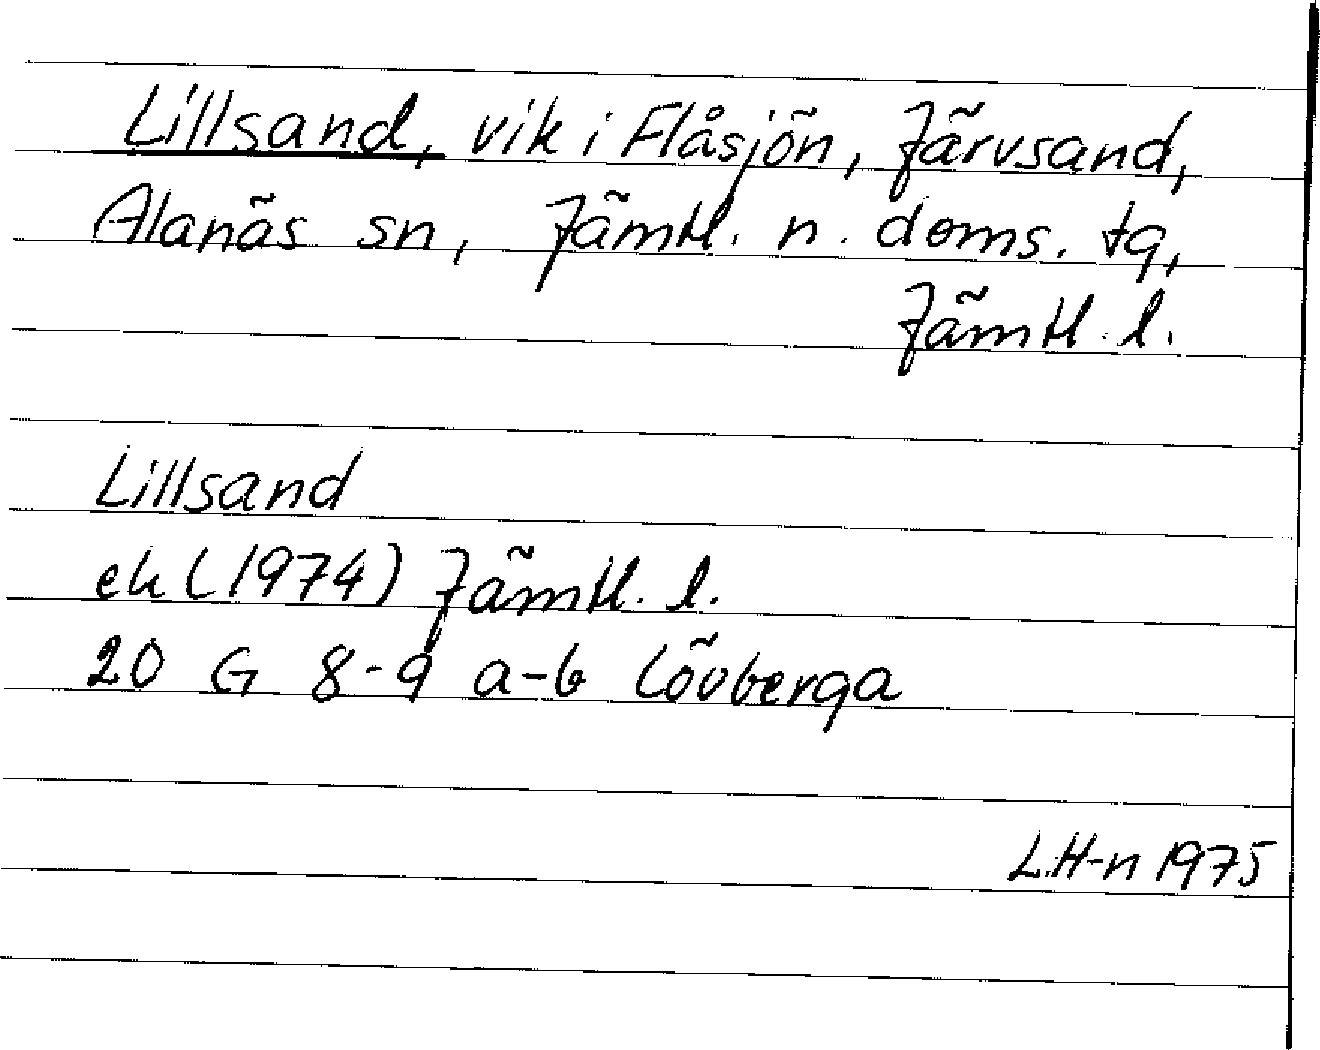 Lillsand, vik i Flåsjön, Järvsand,
Alanäs sn, Jämtl. n. doms. tg,
Jämtl. l.
Lillsand
ek (1974) Jämtl. l.
20 G 8-9 a-b Lövberga
L.H-n 1975